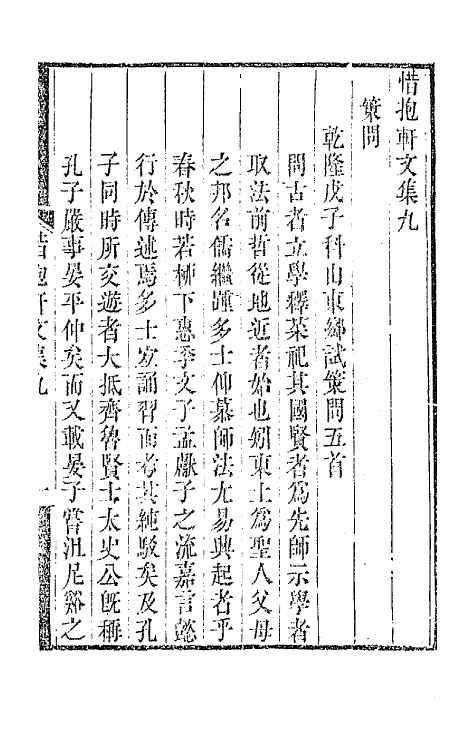 惜抱軒文集九
策問
乾隆戊子科山東鄉試策問五首
問古者立學釋菜祀其國賢者為先師示學者
取法前哲從地近者始也矧東土為聖人父母
之邦名儒繼踵多士仰慕師法尤易興起者乎
春秋時若柳下惠季文子孟獻子之流嘉言懿
行於傳述焉多士宜誦習而考其純駁矣及孔
子同時所交遊者大抵齊魯賢士太史公既稱
孔子嚴事晏平仲矣而又載晏子嘗沮尼谿之
惜抱軒文集九
一